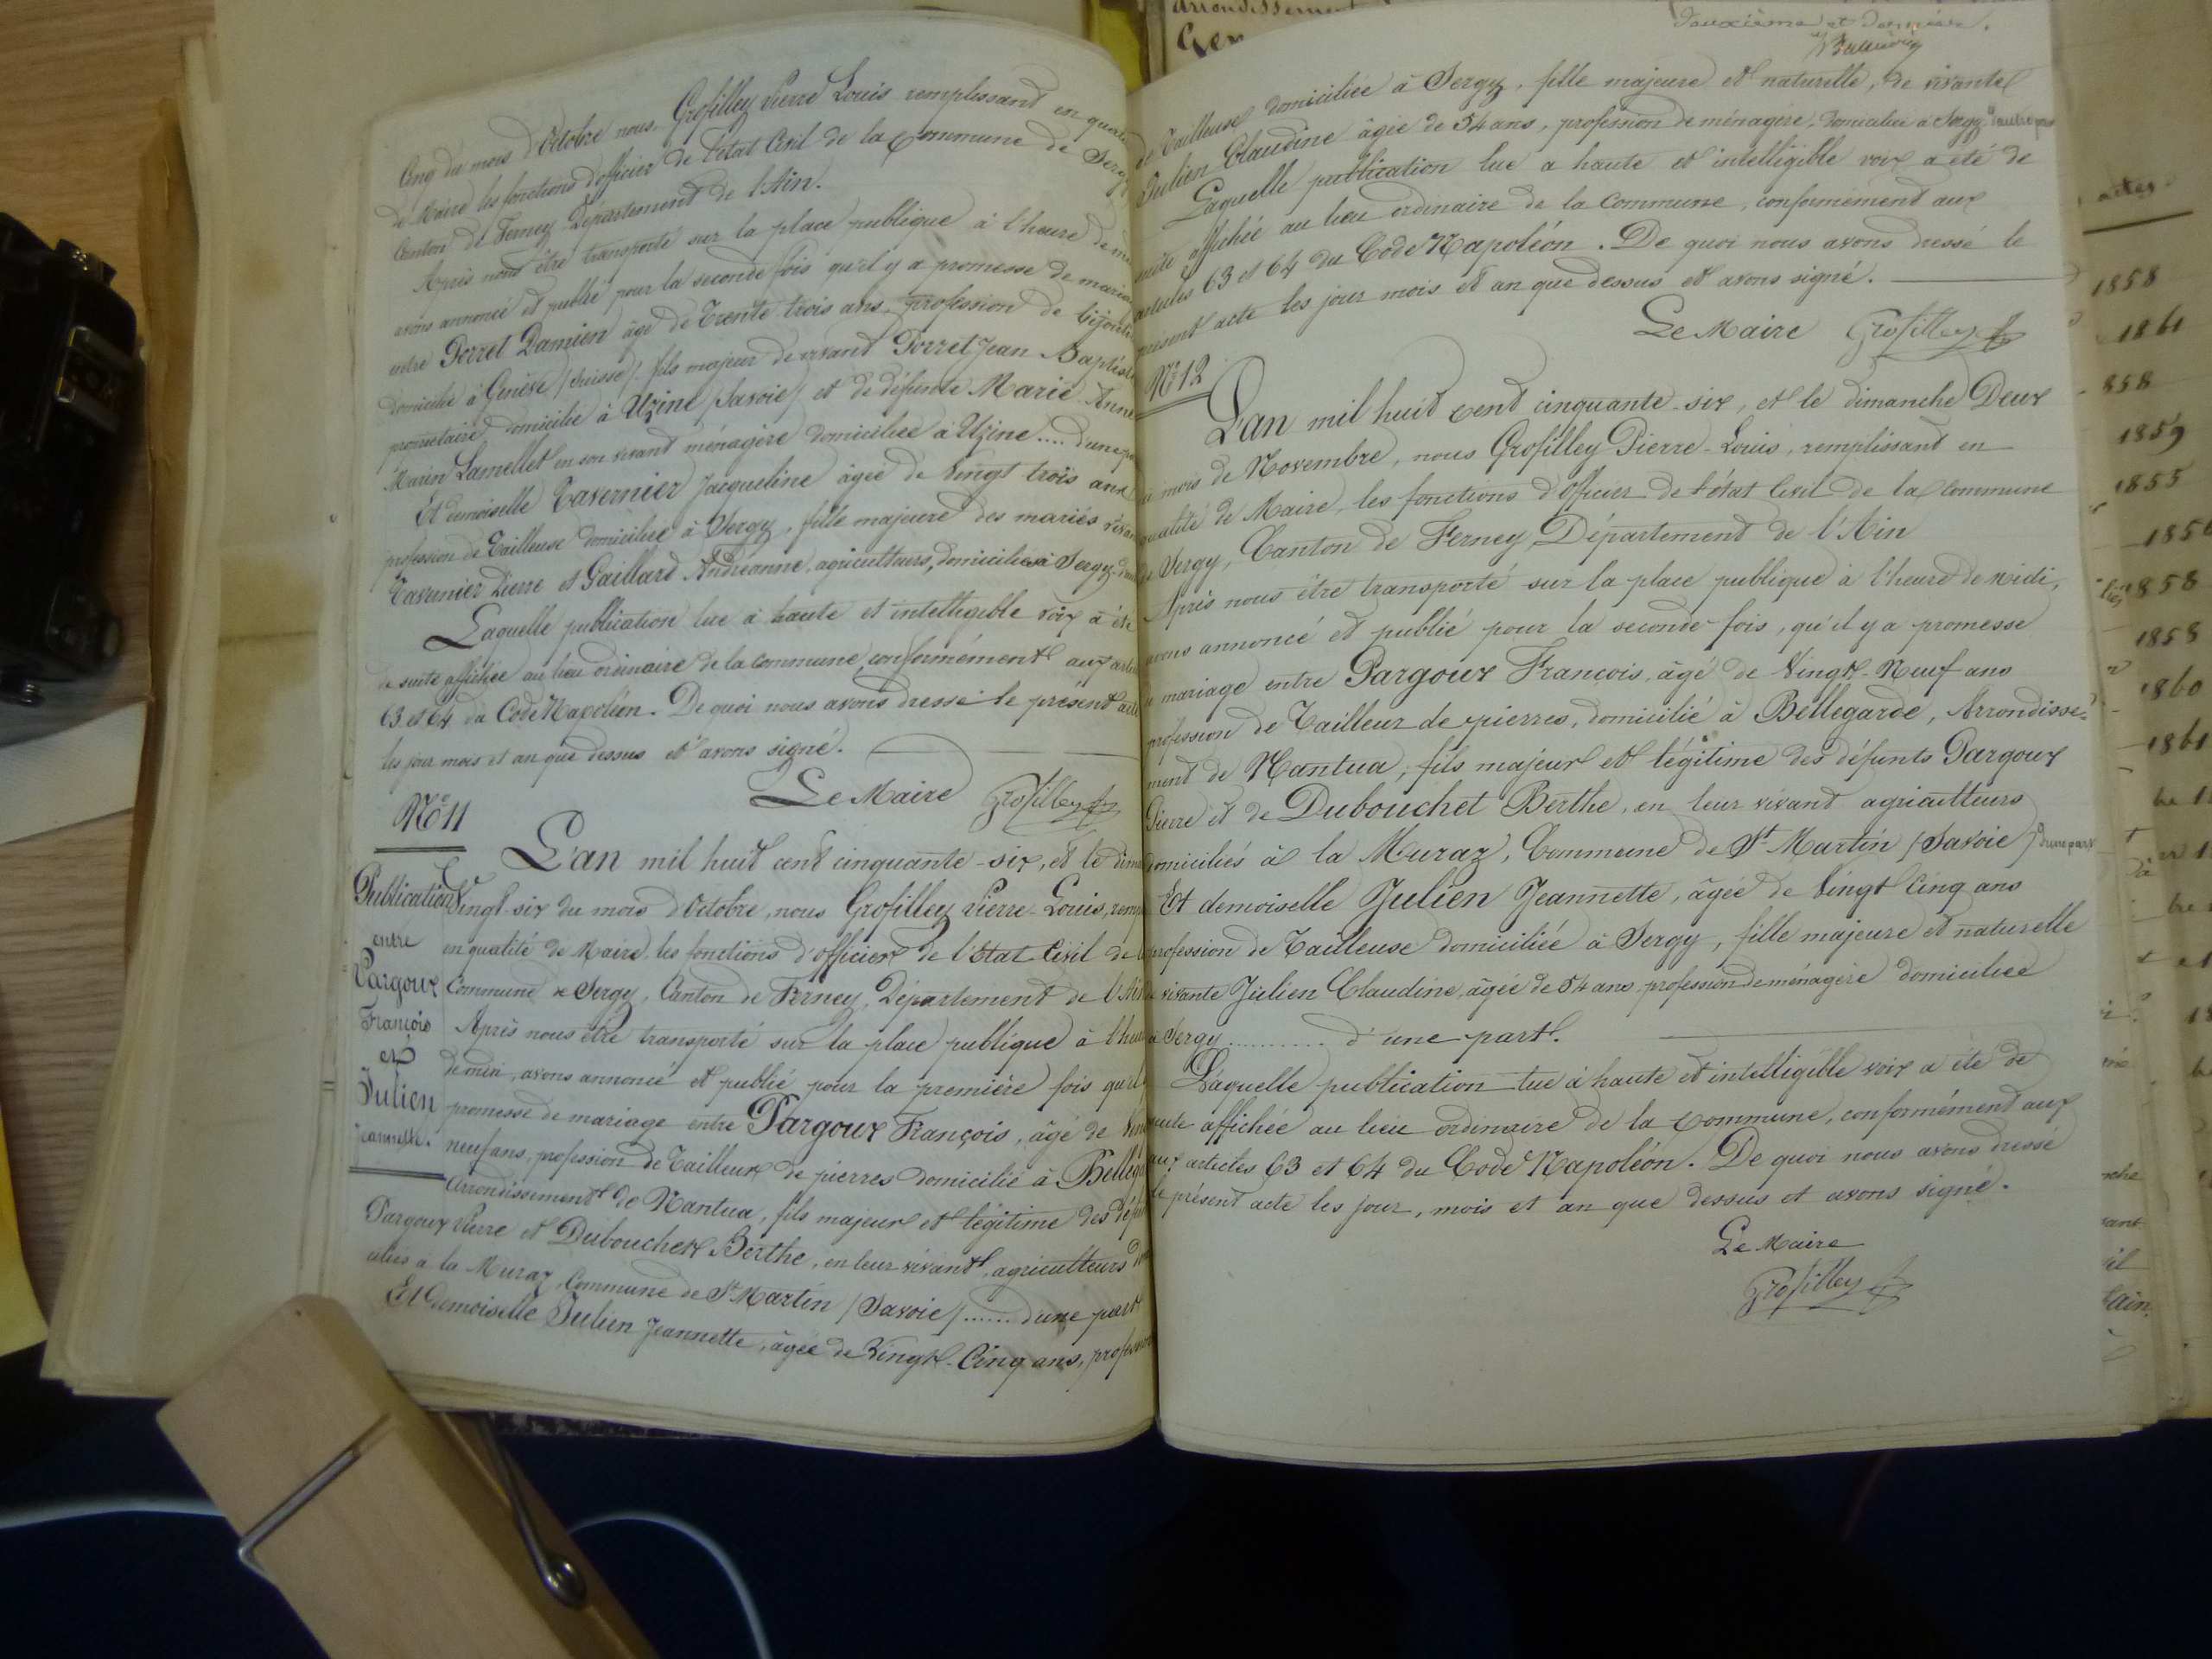 Cinq du mois d'Octobre nous Grosfilley Pierre Louis remplissant en qualité
de Maire les fonctions d'officier de l'état Civil de la Commune de Sergy
Canton de Ferney Département de l'Ain.
Après nous être transporté sur la place publique à l'heure de
avons annoncé et publié pour la seconde fois qu'il y a promesse de mariage
entre Perret Damien âgé de Trente trois ans profession de bijoutier
domicilié à Genève (Suisse) fils majeur de vivant Porret Jean Baptiste
propriétaire domicilié à Uzine (Savoie) et de défunte Marie Anne
Marin Lamellet en son vivant ménagère domiciliée à Uzine .... d'une
Et demoiselle Tavernier Jacqueline âgée de Vingt trois ans
profession de Tailleuse domiciliée à Sergy, fille majeure des mariés vivan
Tavernier Pierre et Gaillard Andréanne, agriculteurs, domiciliés à Sergy
Laquelle publication lue à haute et intelligible voix a été
de suite affichée au lieu ordinaire de la commune, conformément aux
63 et 64 du Code Napoléon. De quoi nous avons dressé le présent acte
les jour mois et an que dessus et avons signé.
Le Maire Grosfilley
No 11
Publication
entre
Pargoux
François
et
Julien
Jeannette.
L'an mil huit cent cinquante-six, et le dim
Vingt-six du mois d'Octobre, nous Grosfilley Pierre-Louis, remp
en qualité de Maire, les fonctions d'officier de l'Etat Civil de
Commune de Sergy, Canton de Ferney, Département de l'Ain
Après nous être transporté sur la place publique à l'heure
de midi, avons annoncé et publié pour la première fois qu'il
promesse de mariage entre Pargoux François, âgé de Vin
neuf ans, profession de Tailleur de pierres domicilié à Belleg
Arrondissement de Nantua, fils majeur et légitime des déf
Pargoux Pierre et Dubouchet Berthe, en leur vivant, agriculteurs
ciliés à la Muraz, Commune de St Martin (Savoie) ...... d'une part
Et demoiselle Julien Jeannette, âgée de Vingt-Cinq ans, profession
deuxième et dernière.
de Tailleuse domiciliée à Sergy, fille majeure et naturelle, de vivante
Julien Claudine âgée de 54 ans, profession de ménagère, domiciliée à Sergy d'autre part
Laquelle publication lue à haute et intelligible voix a été de
suite affichée au lieu ordinaire de la commune, conformément aux
articles 63 et 64 du Code Napoléon. De quoi nous avons dressé le
présent acte les jour mois et an que dessus et avons signé.
Le Maire Grosfilley
No 12
L'an mil huit cent cinquante-six, et le dimanche Deux
du mois de Novembre, nous Grosfilley Pierre-Louis, remplissant en
qualité de Maire, les fonctions d'officier de l'état Civil de la Commune
de Sergy, Canton de Ferney, Département de l'Ain
Après nous être transporté sur la place publique à l'heure de midi,
avons annoncé et publié pour la seconde fois, qu'il y a promesse
de mariage entre Pargoux François, âgé de Vingt-Neuf ans
profession de Tailleur de pierres, domicilié à Bellegarde, Arrondisse-
ment de Nantua, fils majeur et légitime des défunts Pargoux
Pierre et de Dubouchet Berthe, en leur vivant agriculteurs
domiciliés à la Muraz, Commune de St Martin (Savoie) d'une part
Et demoiselle Julien Jeannette, âgée de Vingt Cinq ans
profession de Tailleuse domiciliée à Sergy, fille majeure et naturelle
de vivante Julien Claudine, âgée de 54 ans, profession de ménagère domiciliée
à Sergy .......... d'une part.
Laquelle publication lue à haute et intelligible voix a été de
suite affichée au lieu ordinaire de la commune, conformément aux
aux articles 63 et 64 du Code Napoléon. De quoi nous avons dressé
le présent acte les jour, mois et an que dessus et avons signé.
Le Maire
Grosfilley
actes
1858
1861
858
1859
1855
1858
1858
1860
1861